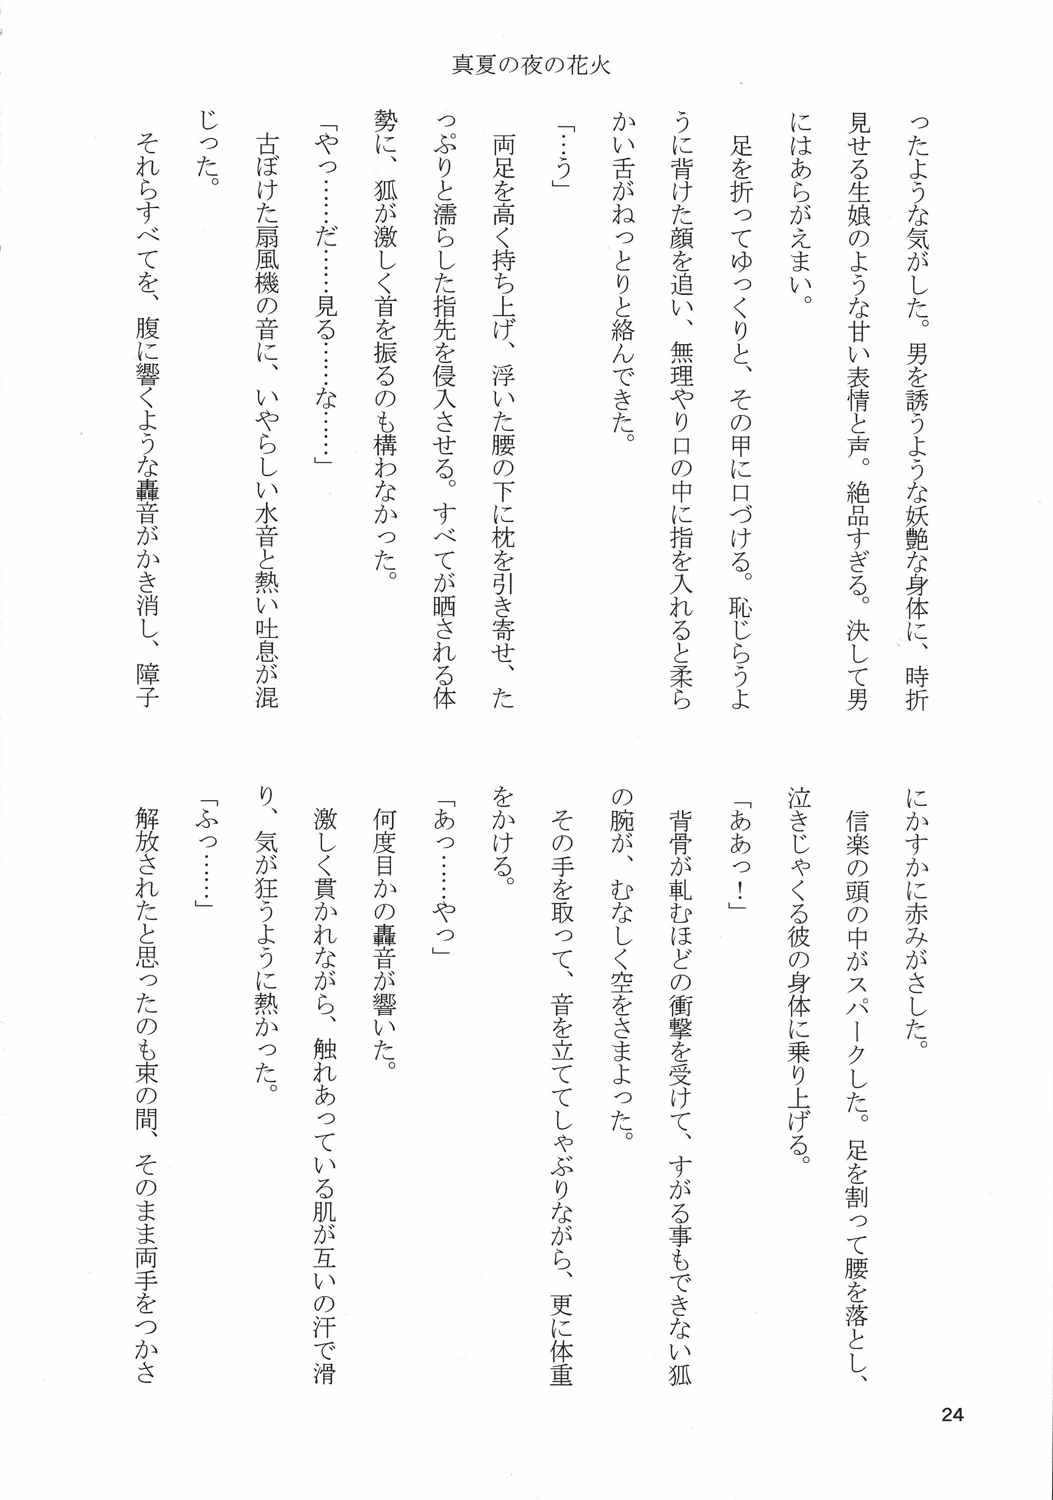 真夏の夜の花火
ったような気がした。男を誘うような妖艶な身体に、時折
見せる生娘のような甘い表情と声。絶品すぎる。決して男
にはあらがえまい。
足を折ってゆっくりと、その甲に口づける。恥じらうよ
うに背けた顔を追い、無理やり口の中に指を入れると柔ら
かい舌がねっとりと絡んできた。
「…う」
両足を高く持ち上げ、浮いた腰の下に枕を引き寄せ、た
っぷりと濡らした指先を侵入させる。すべてが晒される体
勢に、狐が激しく首を振るのも構わなかった。
「やっ……だ……見る……な……」
古ぼけた扇風機の音に、いやらしい水音と熱い吐息が混
じった。
それらすべてを、腹に響くような轟音がかき消し、障子
にかすかに赤みがさした。
信楽の頭の中がスパークした。足を割って腰を落とし、
泣きじゃくる彼の身体に乗り上げる。
「ああっ！」
背骨が軋むほどの衝撃を受けて、すがる事もできない狐
の腕が、むなしく空をさまよった。
その手を取って、音を立ててしゃぶりながら、更に体重
をかける。
「あっ……やっ」
何度目かの轟音が響いた。
激しく貫かれながら、触れあっている肌が互いの汗で滑
り、気が狂うように熱かった。
「ふっ……」
解放されたと思ったのも束の間、そのまま両手をつかさ
24